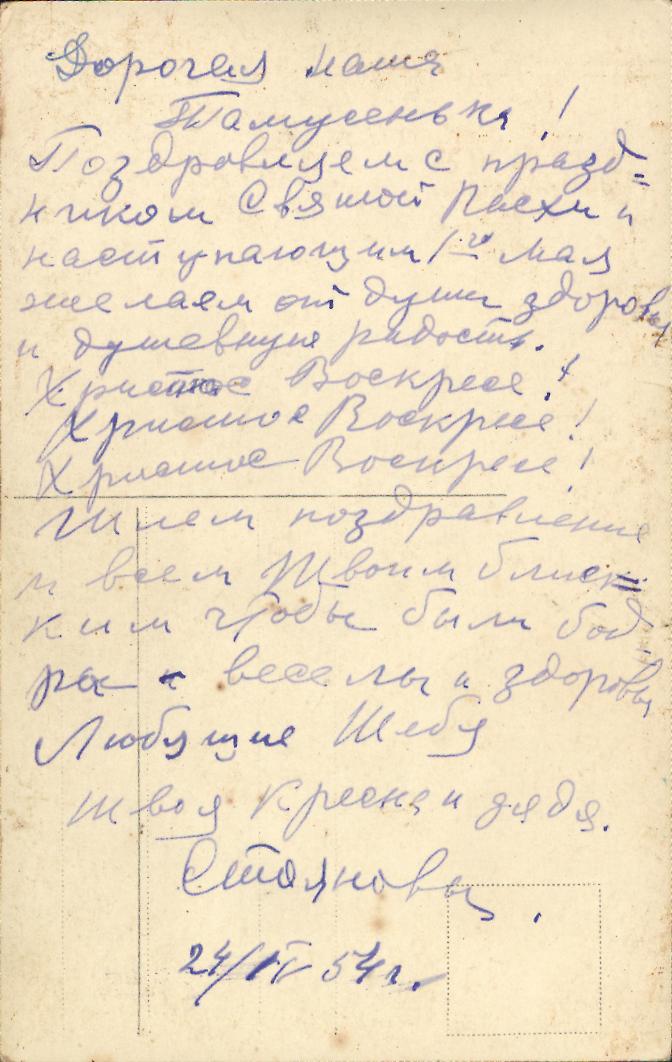 Дорогая наша
Тамусенька!
Поздравляем с празд=
ником Святой Пасхи и
наступающим 1го Мая
желаем от души здоровья
и душевную радость.
Христос Воскресе!
Христос Воскресе!
Христос Воскресе!
Шлем поздравление
и всем Твоим блис=
ким чтобы были бод-
ры и веселы и здоровы
Любящие Тебя
твоя Кресна и дядя.
Стояновы.
24/IV 54 г.